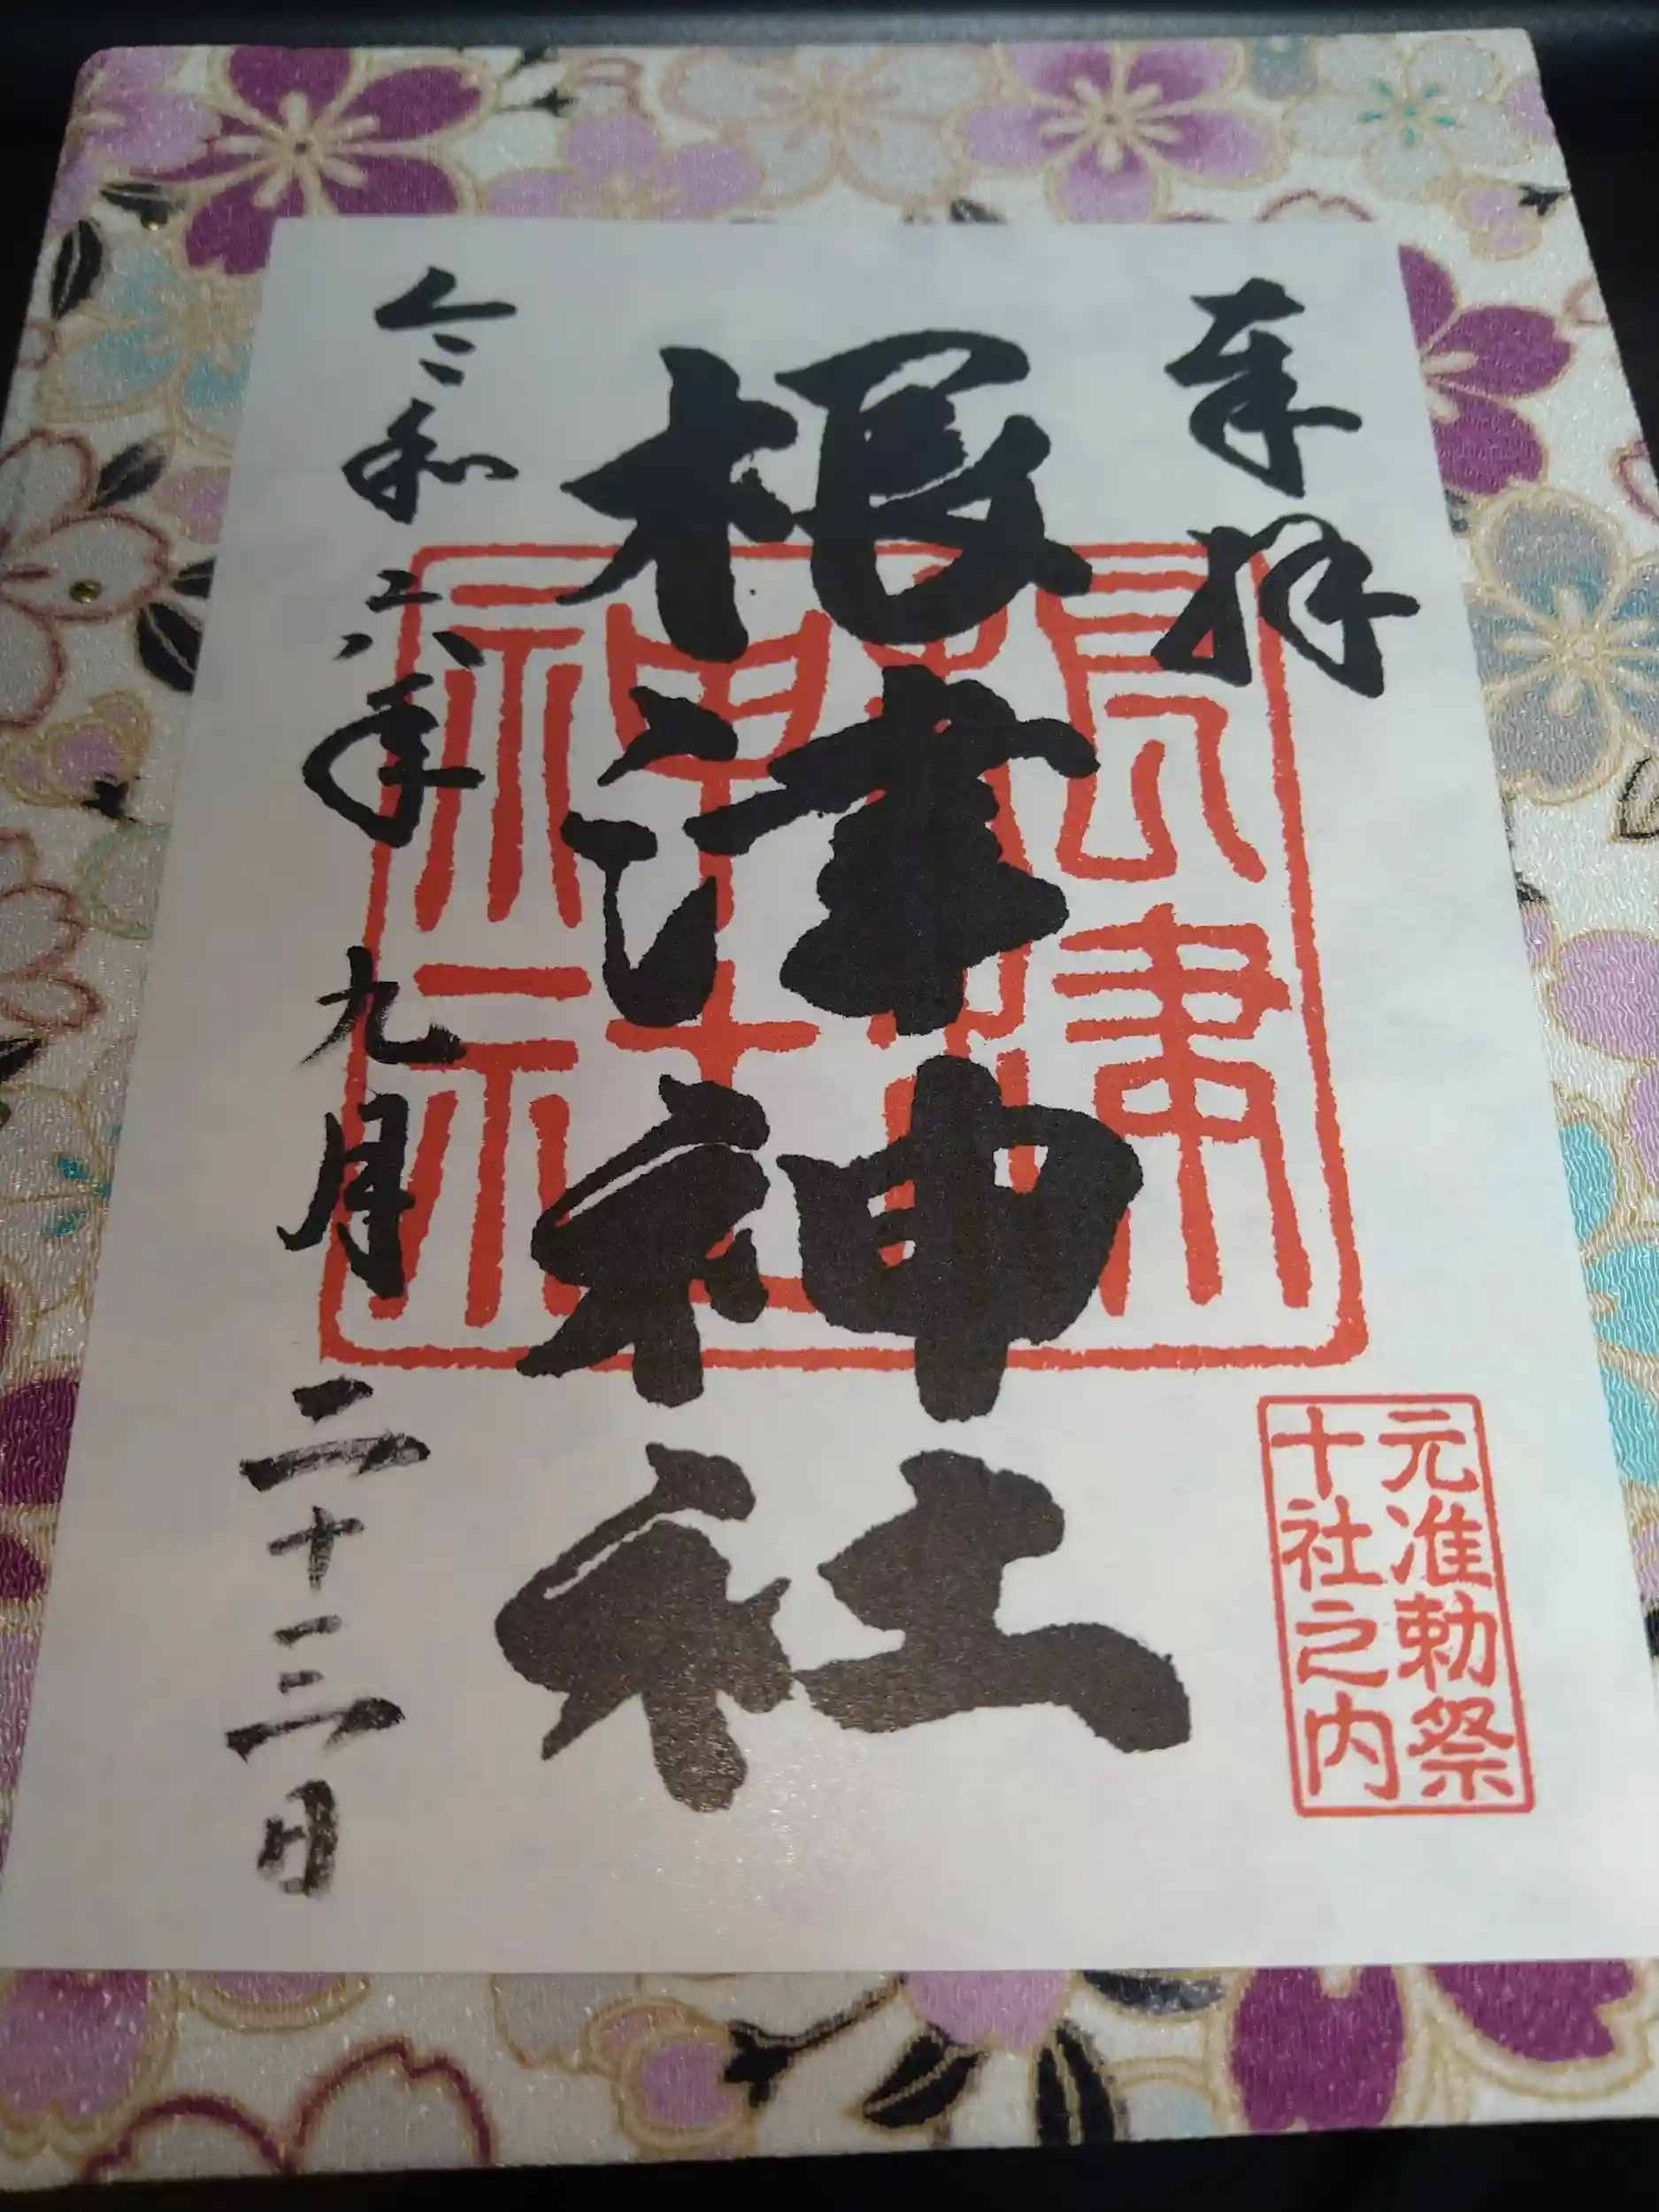 奉拝
根津神社
根津神社
元准勅祭
十社之内
令和六年九月二十三日